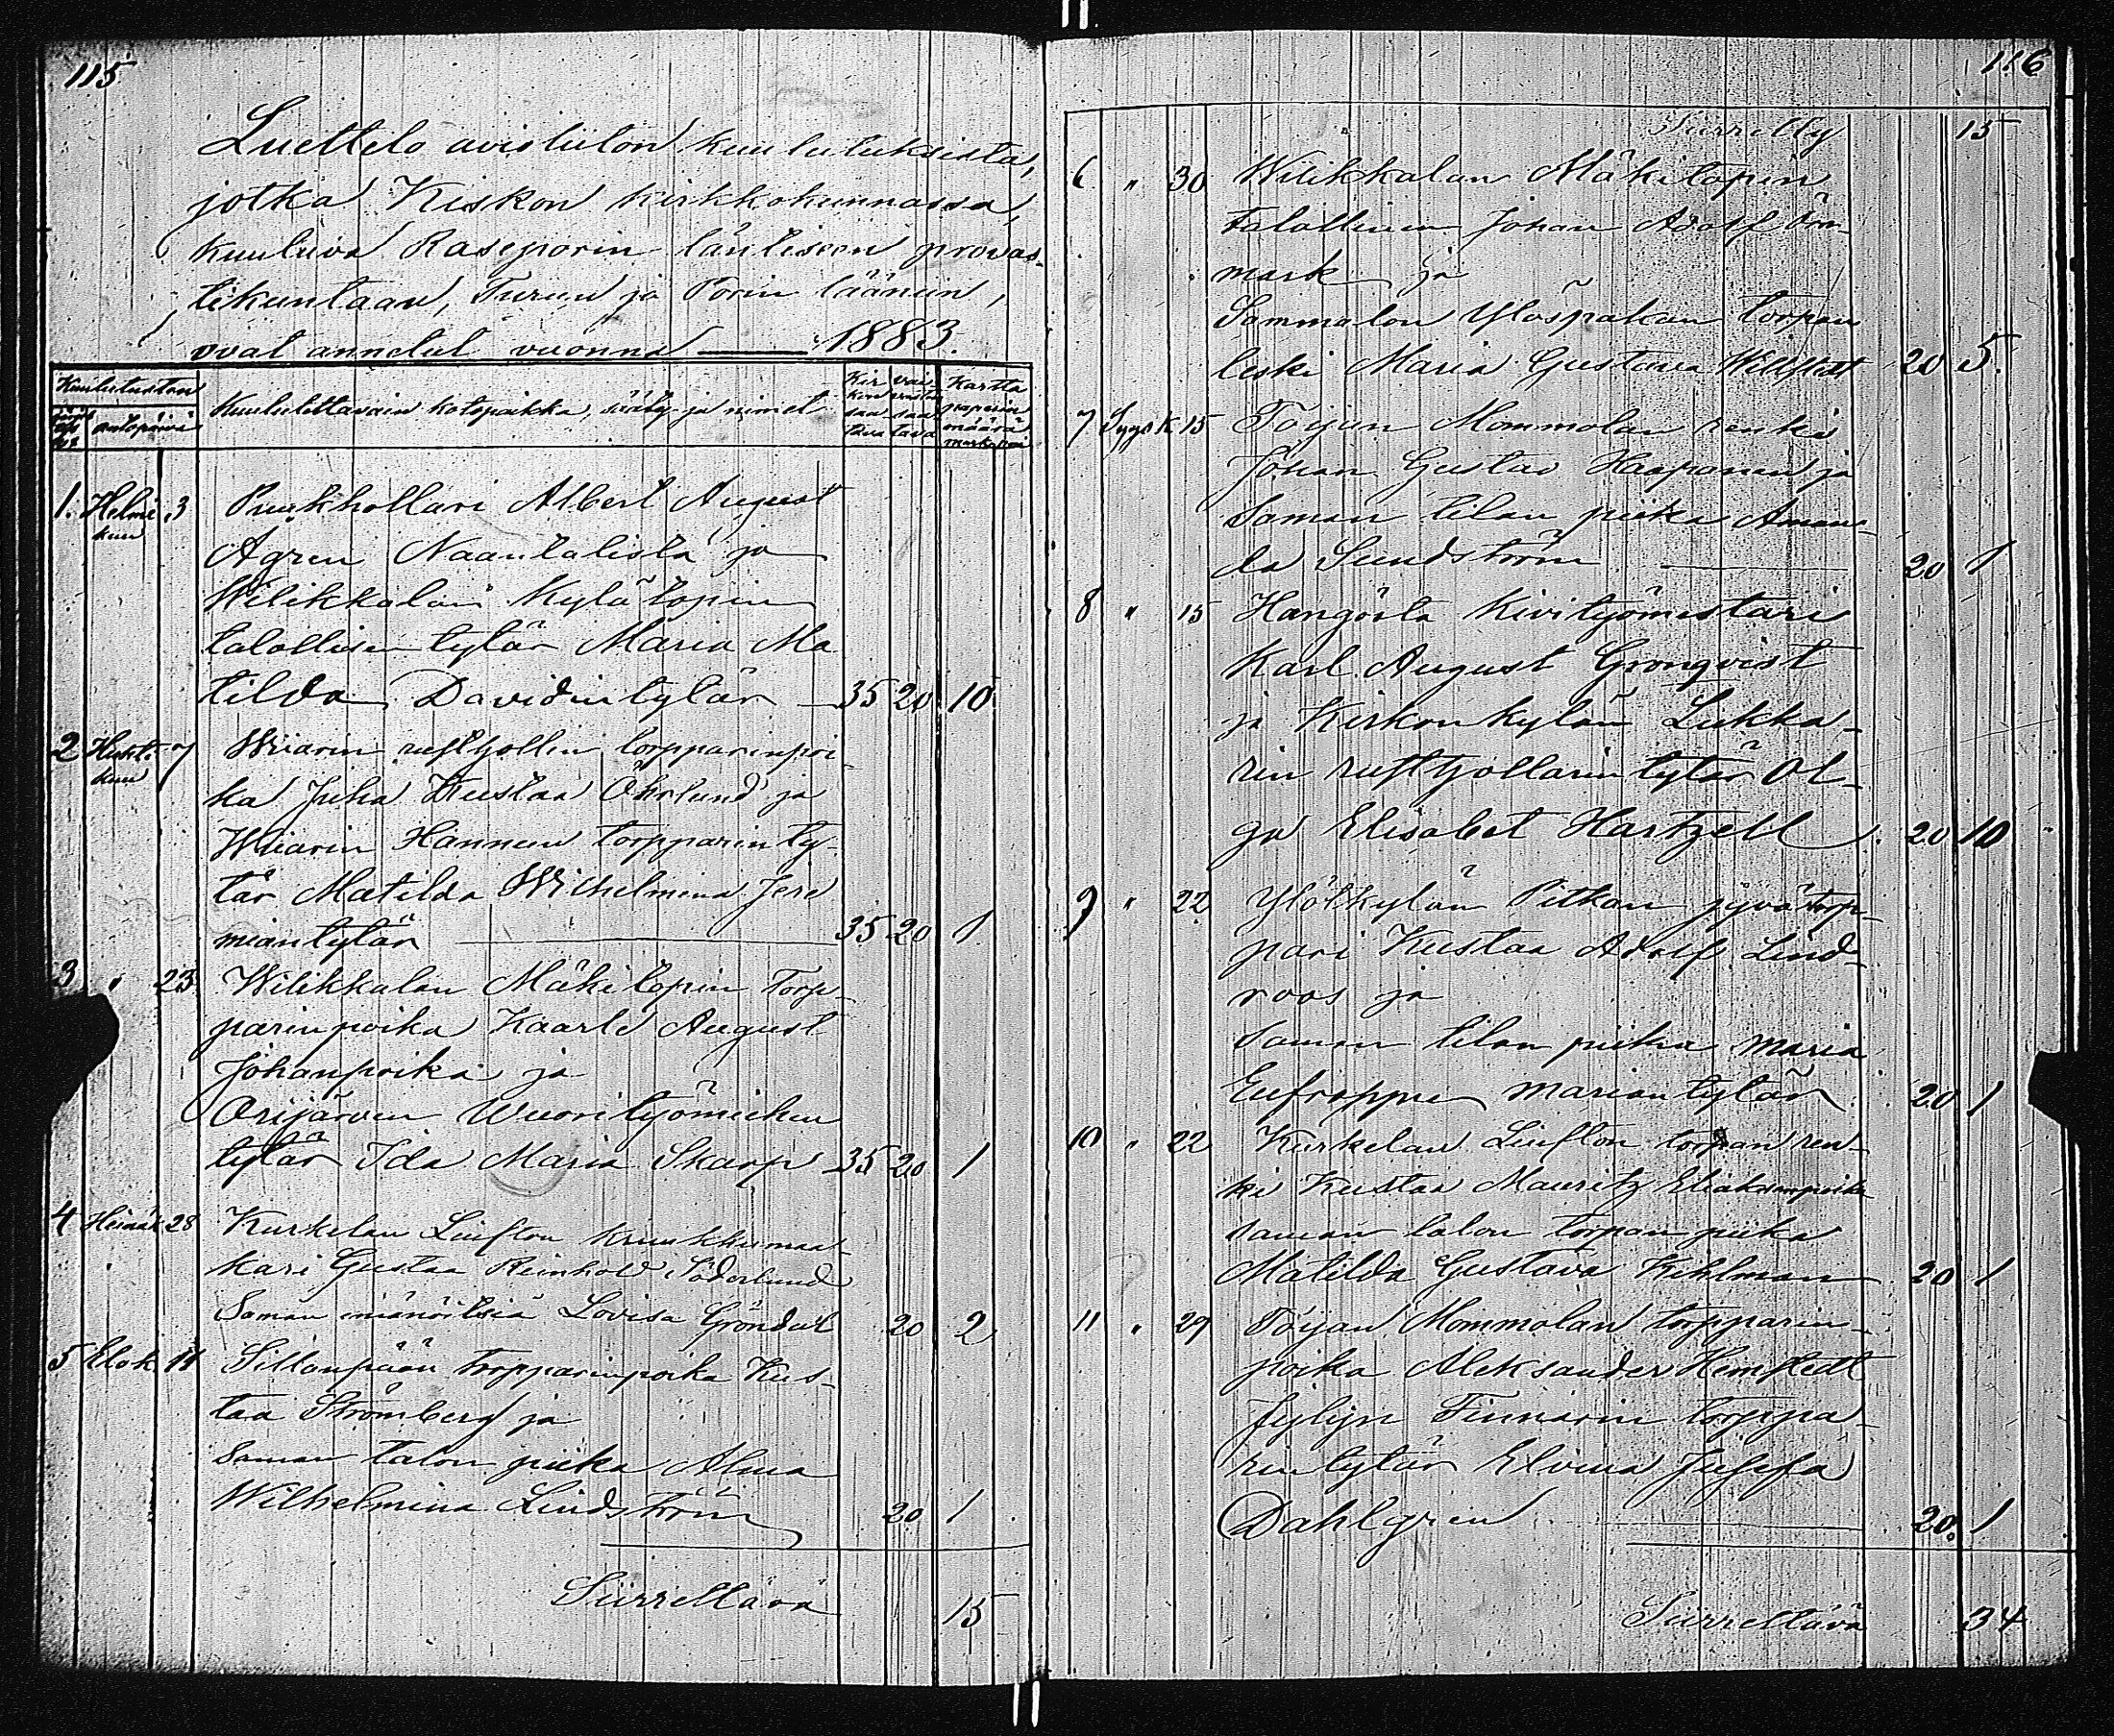 115
Luettelo avioliiton kuulutuksista,
jotka Kiskon kirkkokunnassa,
kuuluva Raseporin läntiseen provas-
tikuntaan, Turun ja Porin lääniin,
ovat annetut vuonna — 1883.
Kuulutusten
antopäivä
Kuulutettavain kotopaikka, sääty ja nimet
Kir kon saa tava
vai vasten saa tava
Kartta paperin määrä
1. Helmi kuu 3 Puukhollari Albert August
Ågren Naantalista ja
Wilikkalan Kylätopin
talollisen tytär Maria Ma
tilda Davidintytär — 35 20 10
2 Huhti kuu 7 Wiiarin rusthollin torpparinpoi-
ka Juha Kustaa Öhrlund ja
Wiiarin Hannun torpparin ty-
tär Matilda Wilhelmina Jere
miantytär 35 20 1
3 " 23 Wilikkalan Mäkitopin torp-
parinpoika Kaarle August
Johanpoika ja
Orijärven Wuorityömiehen
tytär Ida Maria Skarp 35 20 1
4 Heinäk 28 Kurkelan
kari Gustaa Reinhold Söderlund
Saman Lovisa Gröndal 20 2
5 Elok. 11 Sillanpään torpparinpoika Kus-
taa Strömberg ja
Saman talon piika Alma
Wilhelmina Lindström 20 1
Siirrettävä 15
116
Siirretty 15
6 " 30 Wilikkalan Mäkitopin
talollinen Johan Adolf Öm-
mark ja
Sammalon Ylöspakan torpan
leski Maria Gustava 20 5.
7 Syysk 15 Toijan Mommolan renki
Johan Gustav Haapanen ja
Saman tilan piika Aman
da Sundström — 20 1
8 " 15 Hangöstä Kivityömestari
Karl August Grönqvist
ja Kirkonkylän Lukka-
rin rusthollarin tytär Ol-
ga Elisabet Hartzell 20 10
9 " 22 Ylölkylän Pitkan jyvätorp-
pari Kustaa Adolf Lind-
roos ja
Saman tilan piika Maria
Eufroppi Mariantytär 20 1
10 " 22 Kurkelan torpan ren-
ki Kustaa Mauritz Eliakimpoika
saman talon torpan piika
Matilda Gustava Kihlman 20 1
11 " 29 Toijan Mommolan torpparin-
poika Aleksander Hemstedt
Finnarin torppa-
rintytär Elvina Josefa
Dahlgren — 20. 1
Siirrettävä 34